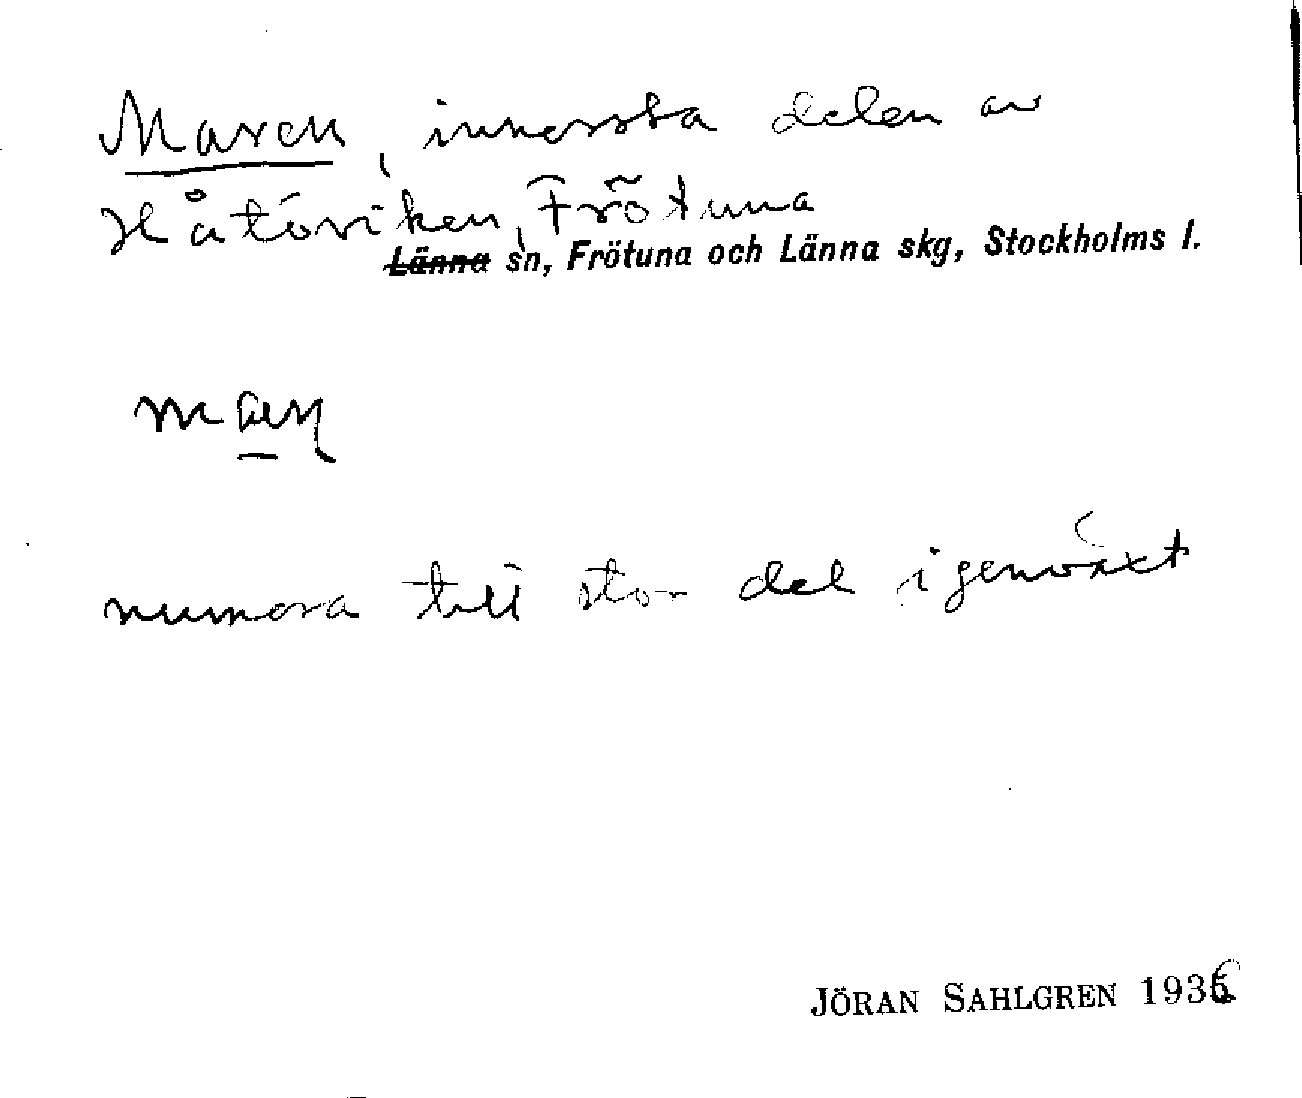 Maren, innersta delen av
Håtöviken, Frötuna
Länna sn, Frötuna och Länna skg, Stockholms l.
numera till stor del igenväxt
JÖRAN SAHLGREN 1936